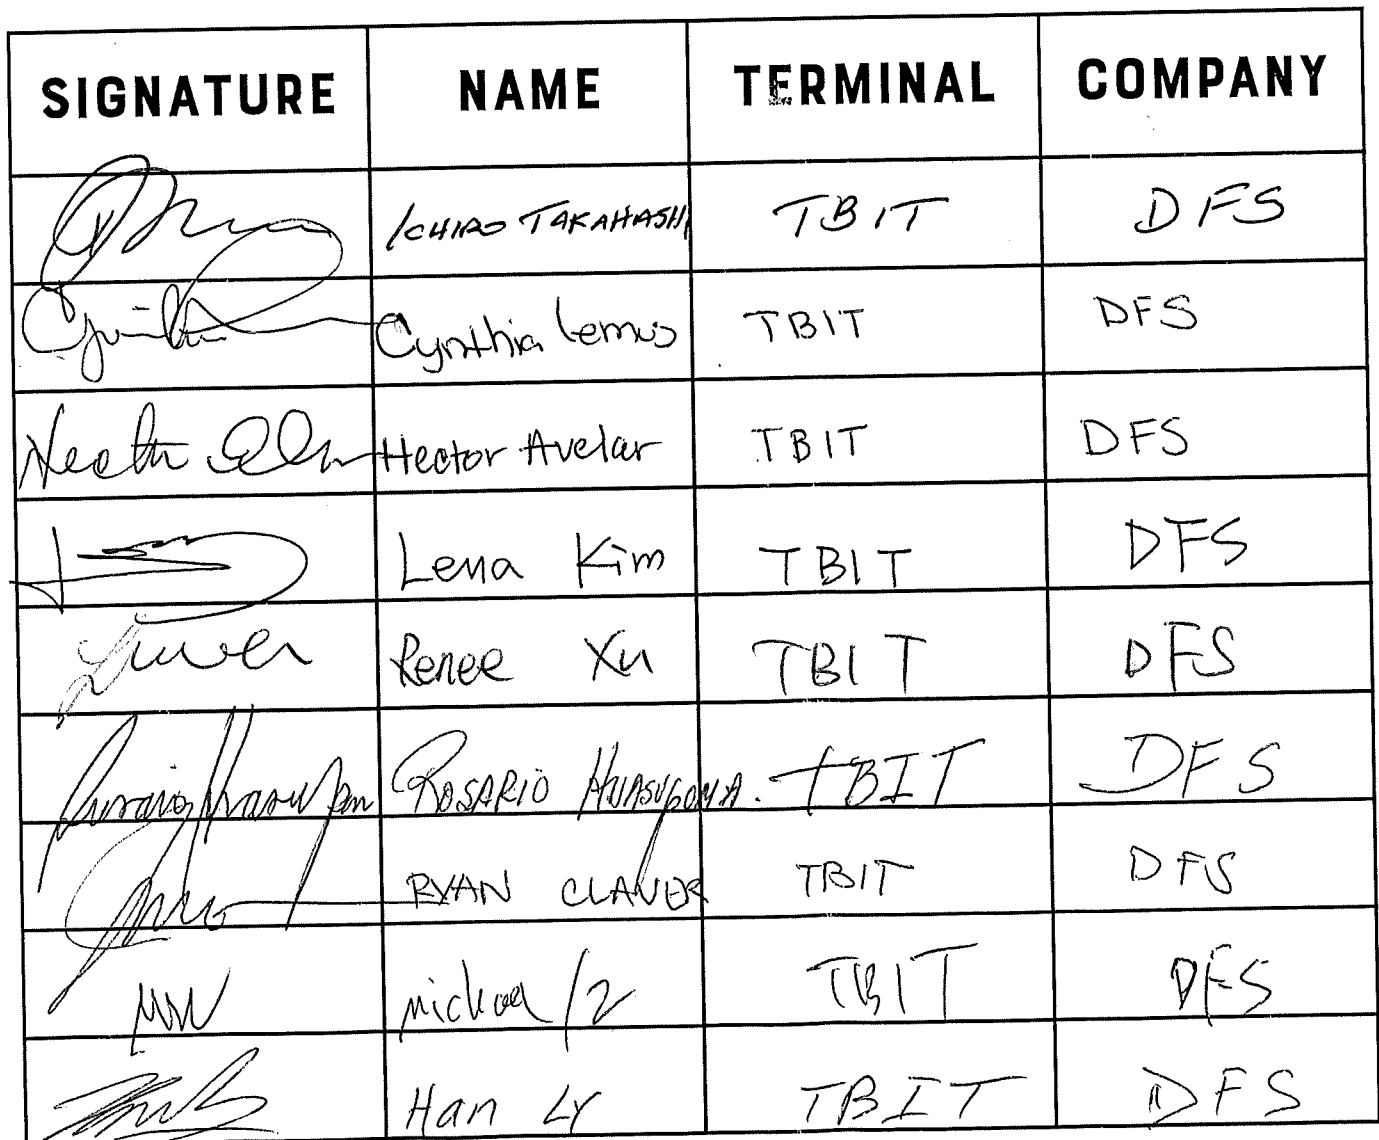 SIGNATURE NAME TERMINAL COMPANY
ICHIRO TAKAHASHI TBIT DFS
Cynthia Lemus TBIT DFS
Hector Avelar TBIT DFS
Lena Kim TBIT DFS
Renee Xu TBIT DFS
ROSARIO TBIT DFS
RYAN CLAVER TBIT DFS
TBIT DFS
Han LY TBIT DFS